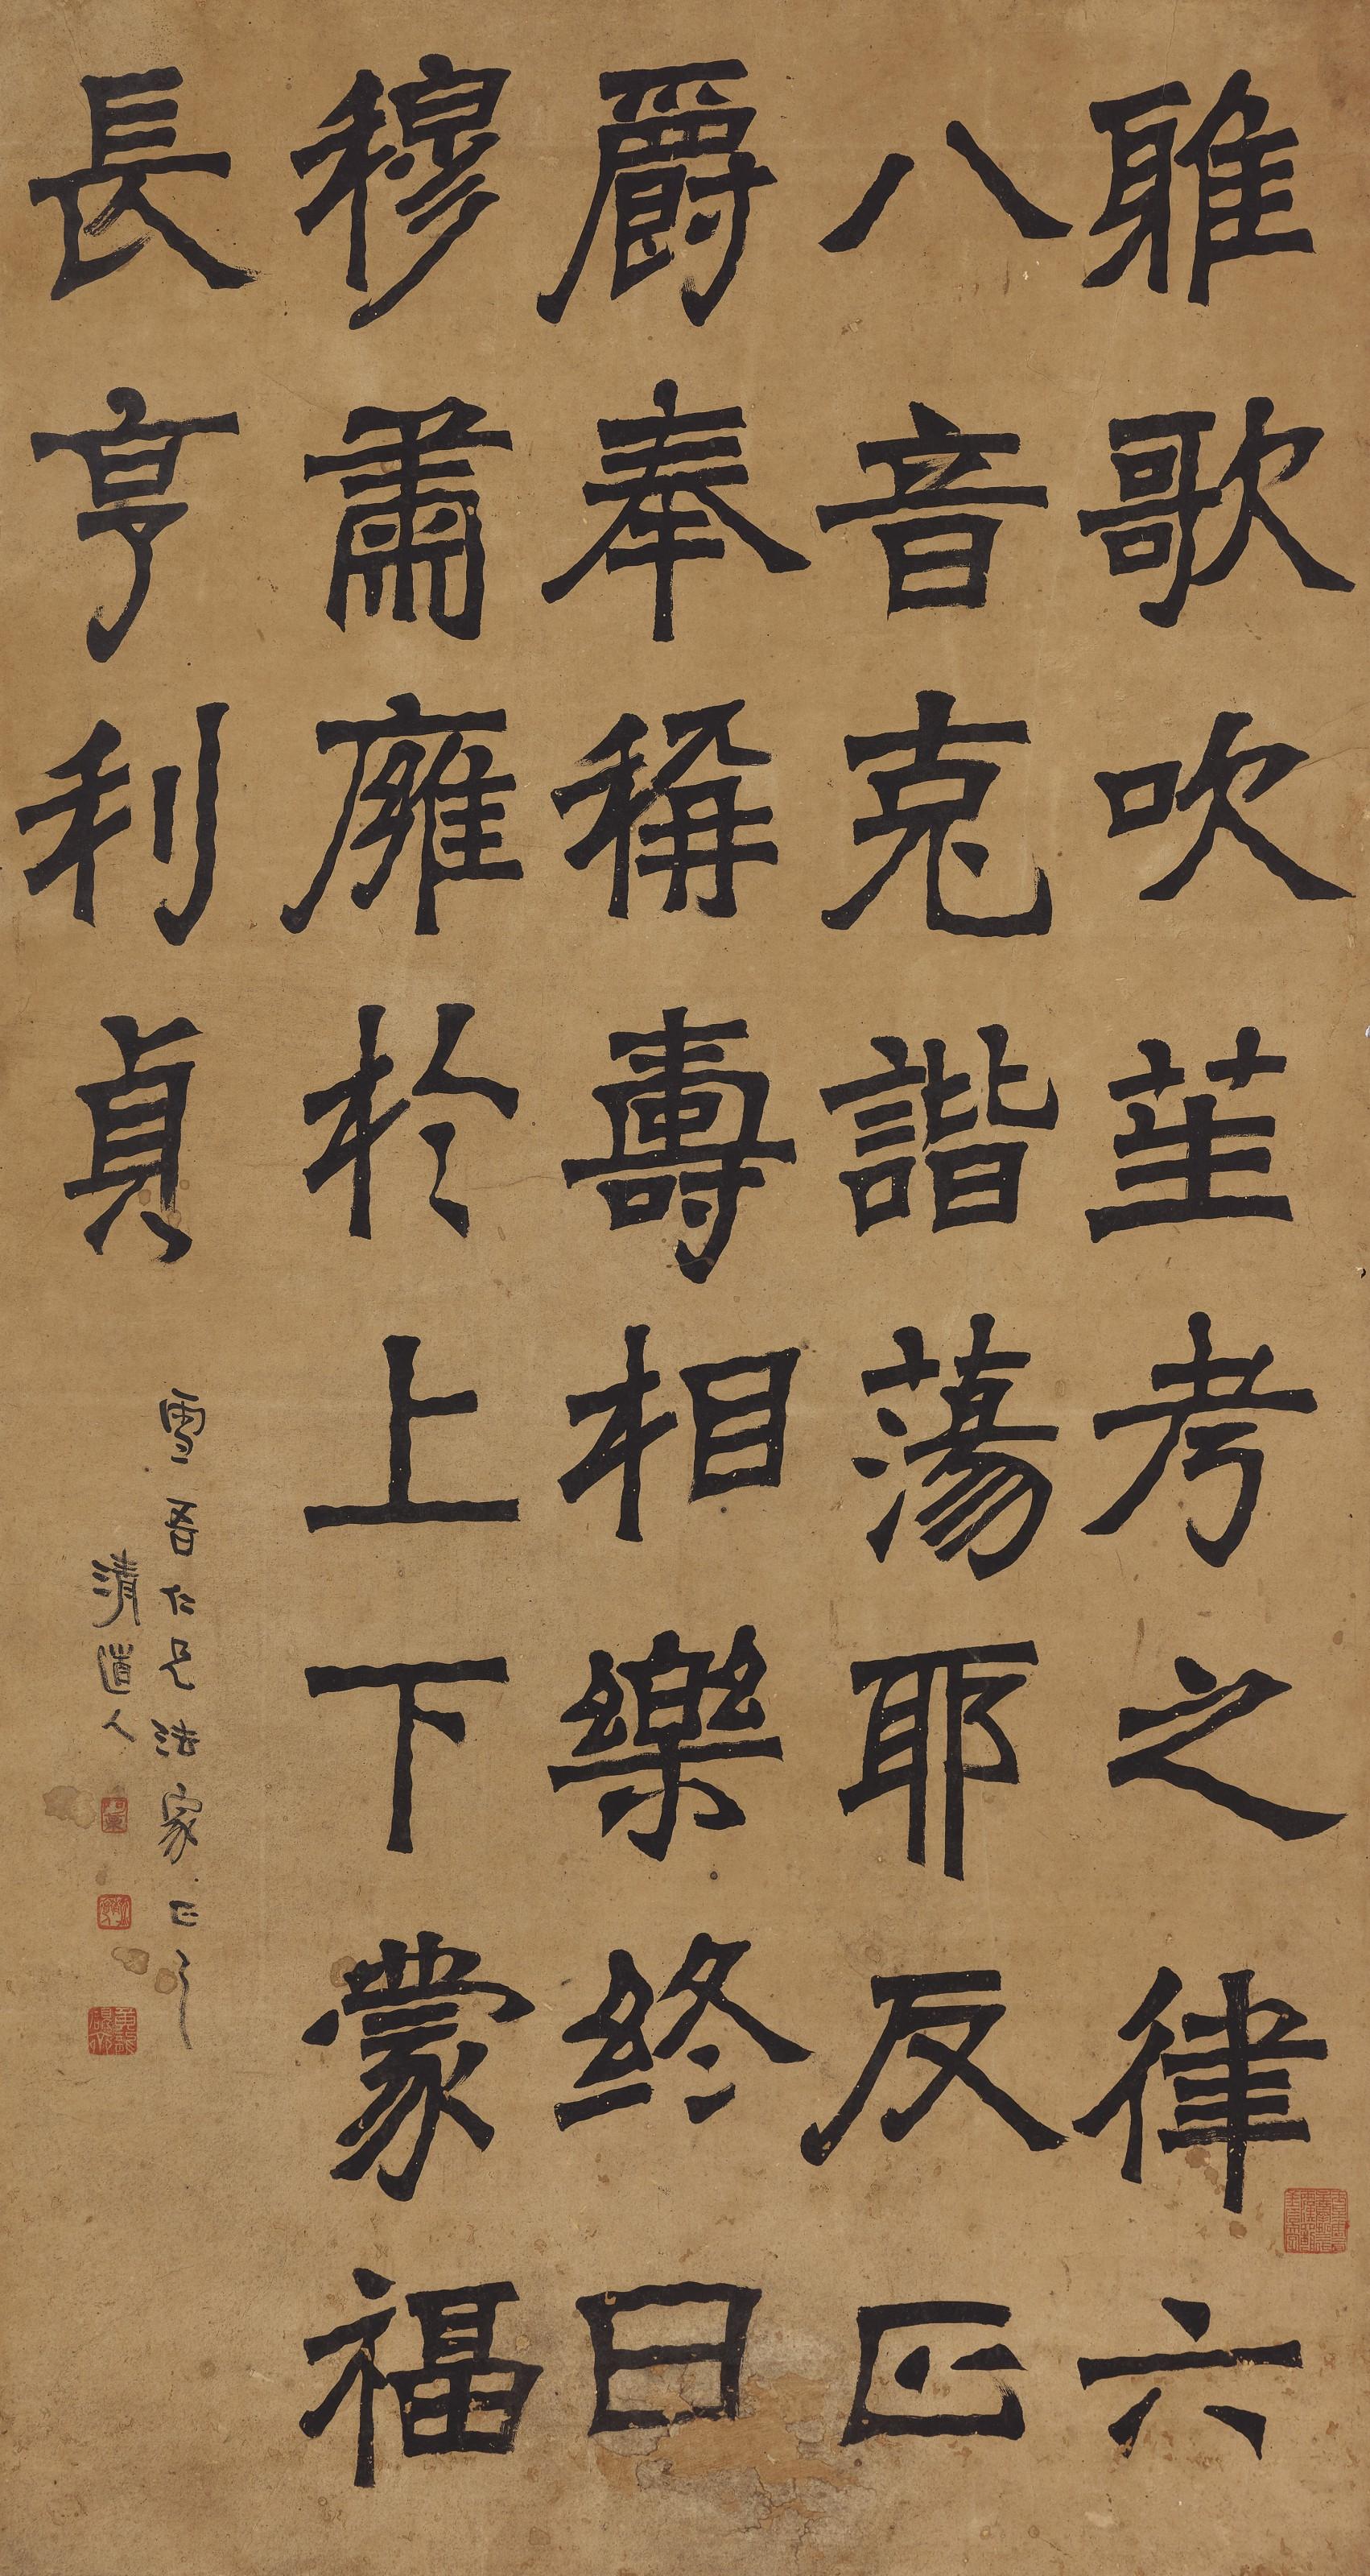 雅歌吹笙考之律六
八音克諧蕩耶反正
爵奉稱壽相樂終日
穆肅雍於上下蒙福
長享利貞
雪吾仁兄法家正之
清道人